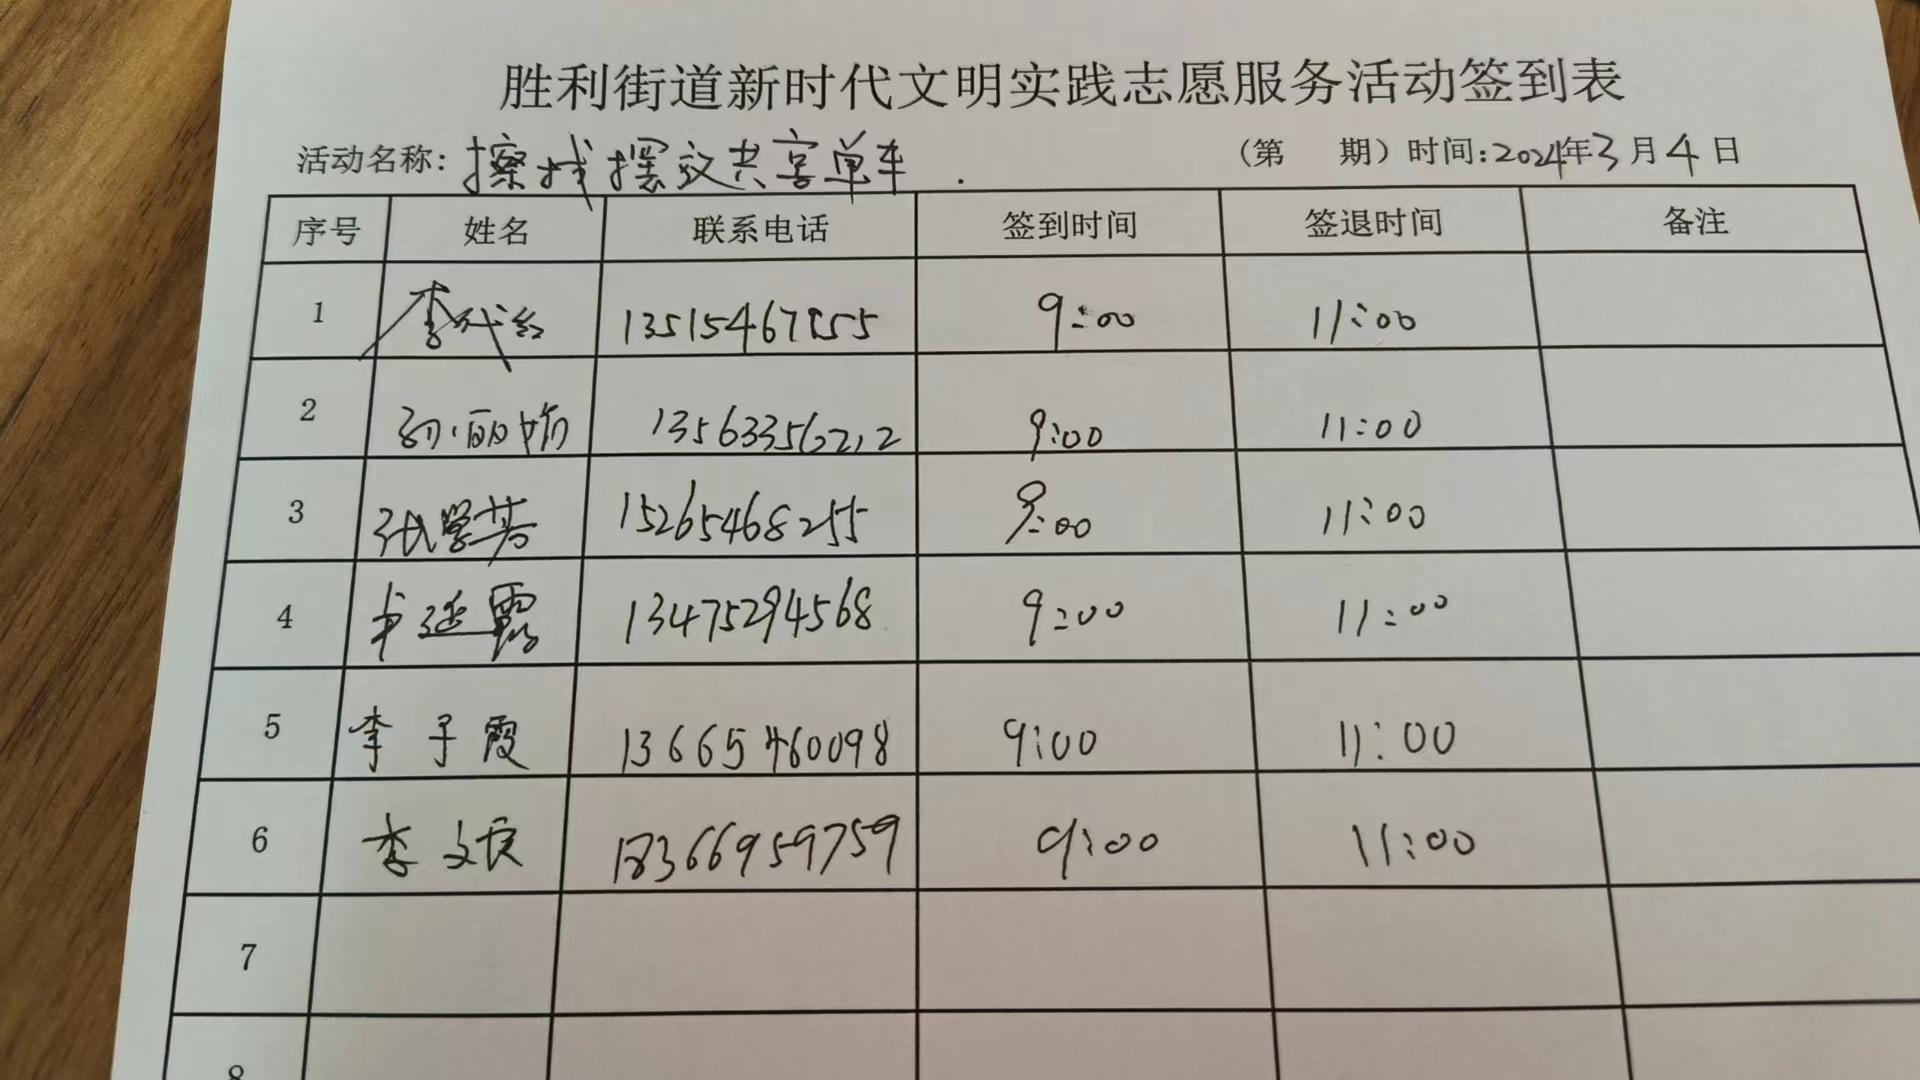 胜利街道新时代文明实践志愿服务活动签到表
活动名称: 擦拭摆放共享单车 (第 期) 时间:2024年3月4日
序号 姓名 联系电话 签到时间 签退时间 备注
1 李代红 13515467855 9:00 11:00
2 孙丽娟 13563356212 9:00 11:00
3 张学芳 15265468255 9:00 11:00
4 延露 13475294568 9:00 11:00
5 李子霞 13665460098 9:00 11:00
6 李文良 18366959759 9:00 11:00
7
8